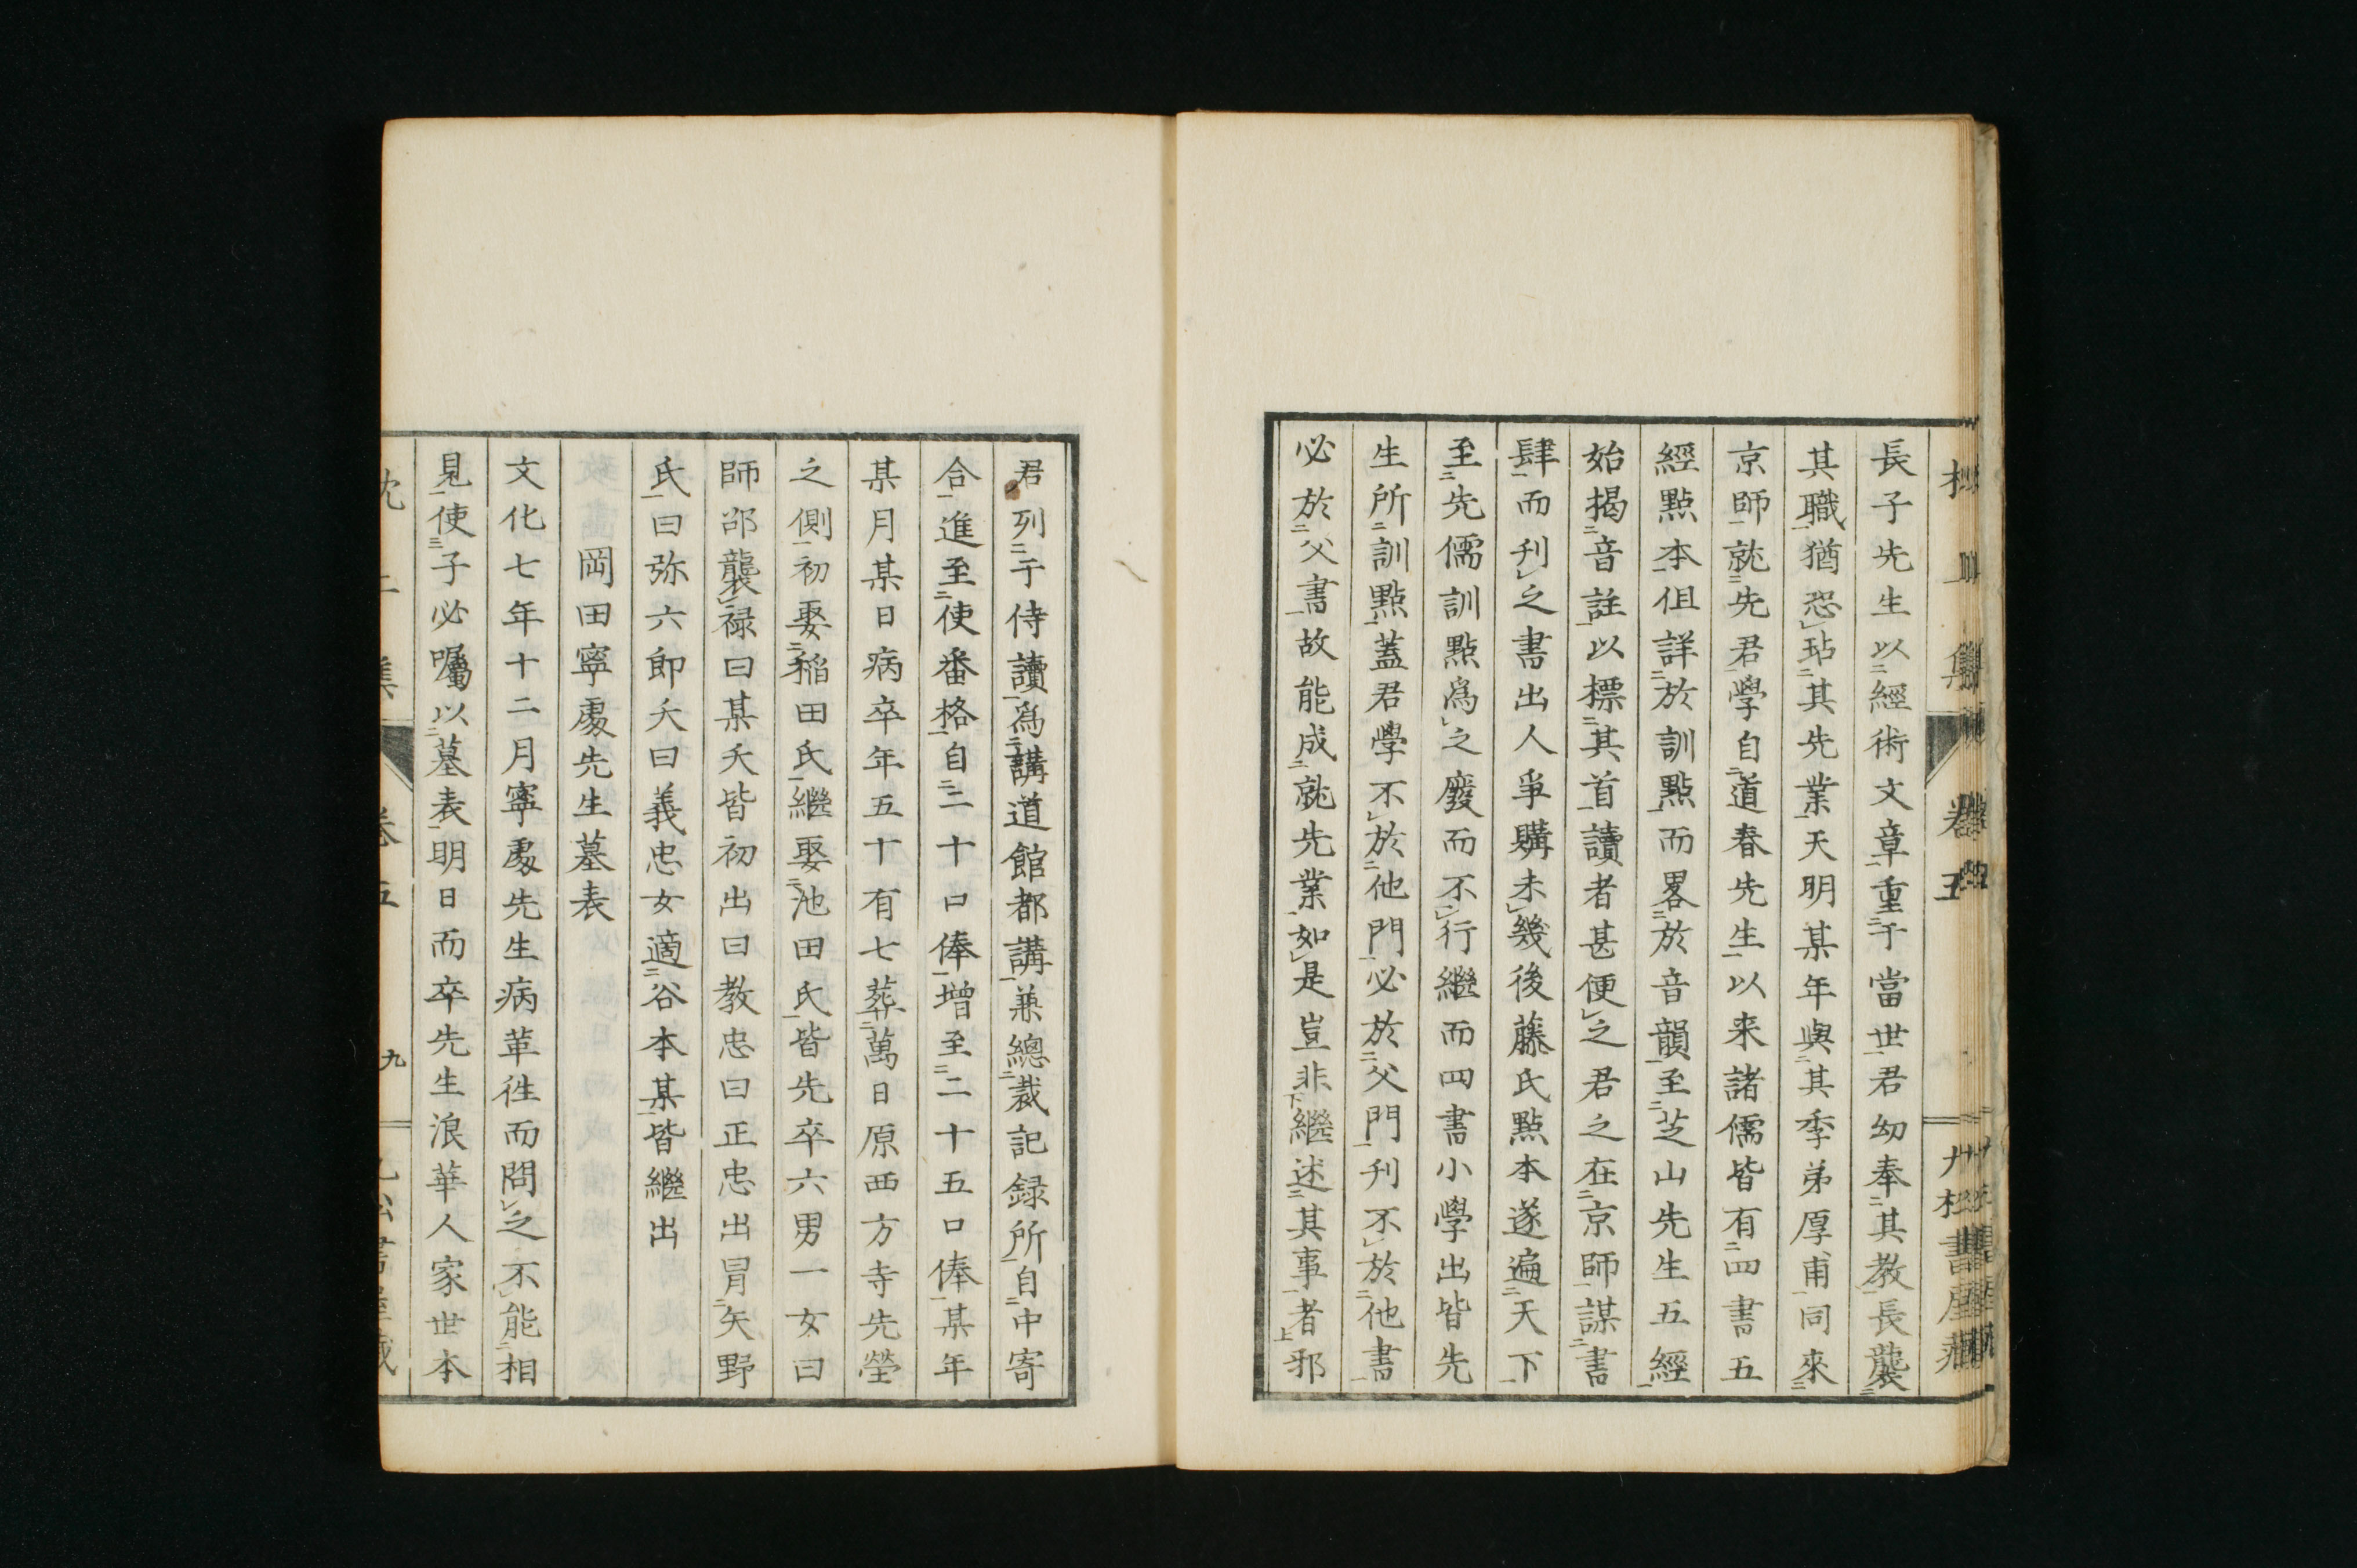 長子先生以經術文章重于當世君幼奉其教長襲
其職猶恐玷其先業天明某年與其季弟厚甫同來
京師就先君學自道春先生以来諸儒皆有四書五
經點本但詳於訓點而畧於音韻至芝山先生五經
始揭音註以標其首讀者甚便之君之在京師謀書
肆而刊之書出人爭購未幾後藤氏點本遂遍天下
至先儒訓點爲之廢而不行繼而四書小學出皆先
生所訓點蓋君學不於他門必於父門刊不於他書
必於父書故能成就先業如是豈非繼述其事者邪
君列于侍讀爲講道館都講兼總裁記録所自中寄
合進至使番格自二十口俸增至二十五口俸某年
某月某日病卒年五十有七葬萬日原西方寺先塋
之側初娶稲田氏繼娶池田氏皆先卒六男一女曰
師邵襲禄曰某夭皆初出曰教忠曰正忠出冐矢野
氏曰弥六郎夭曰義忠女適谷本某皆繼出
岡田寧處先生墓表
文化七年十二月寧處先生病革徃而問之不能相
見使子必囑以墓表明日而卒先生浪華人家世本
卷五
九